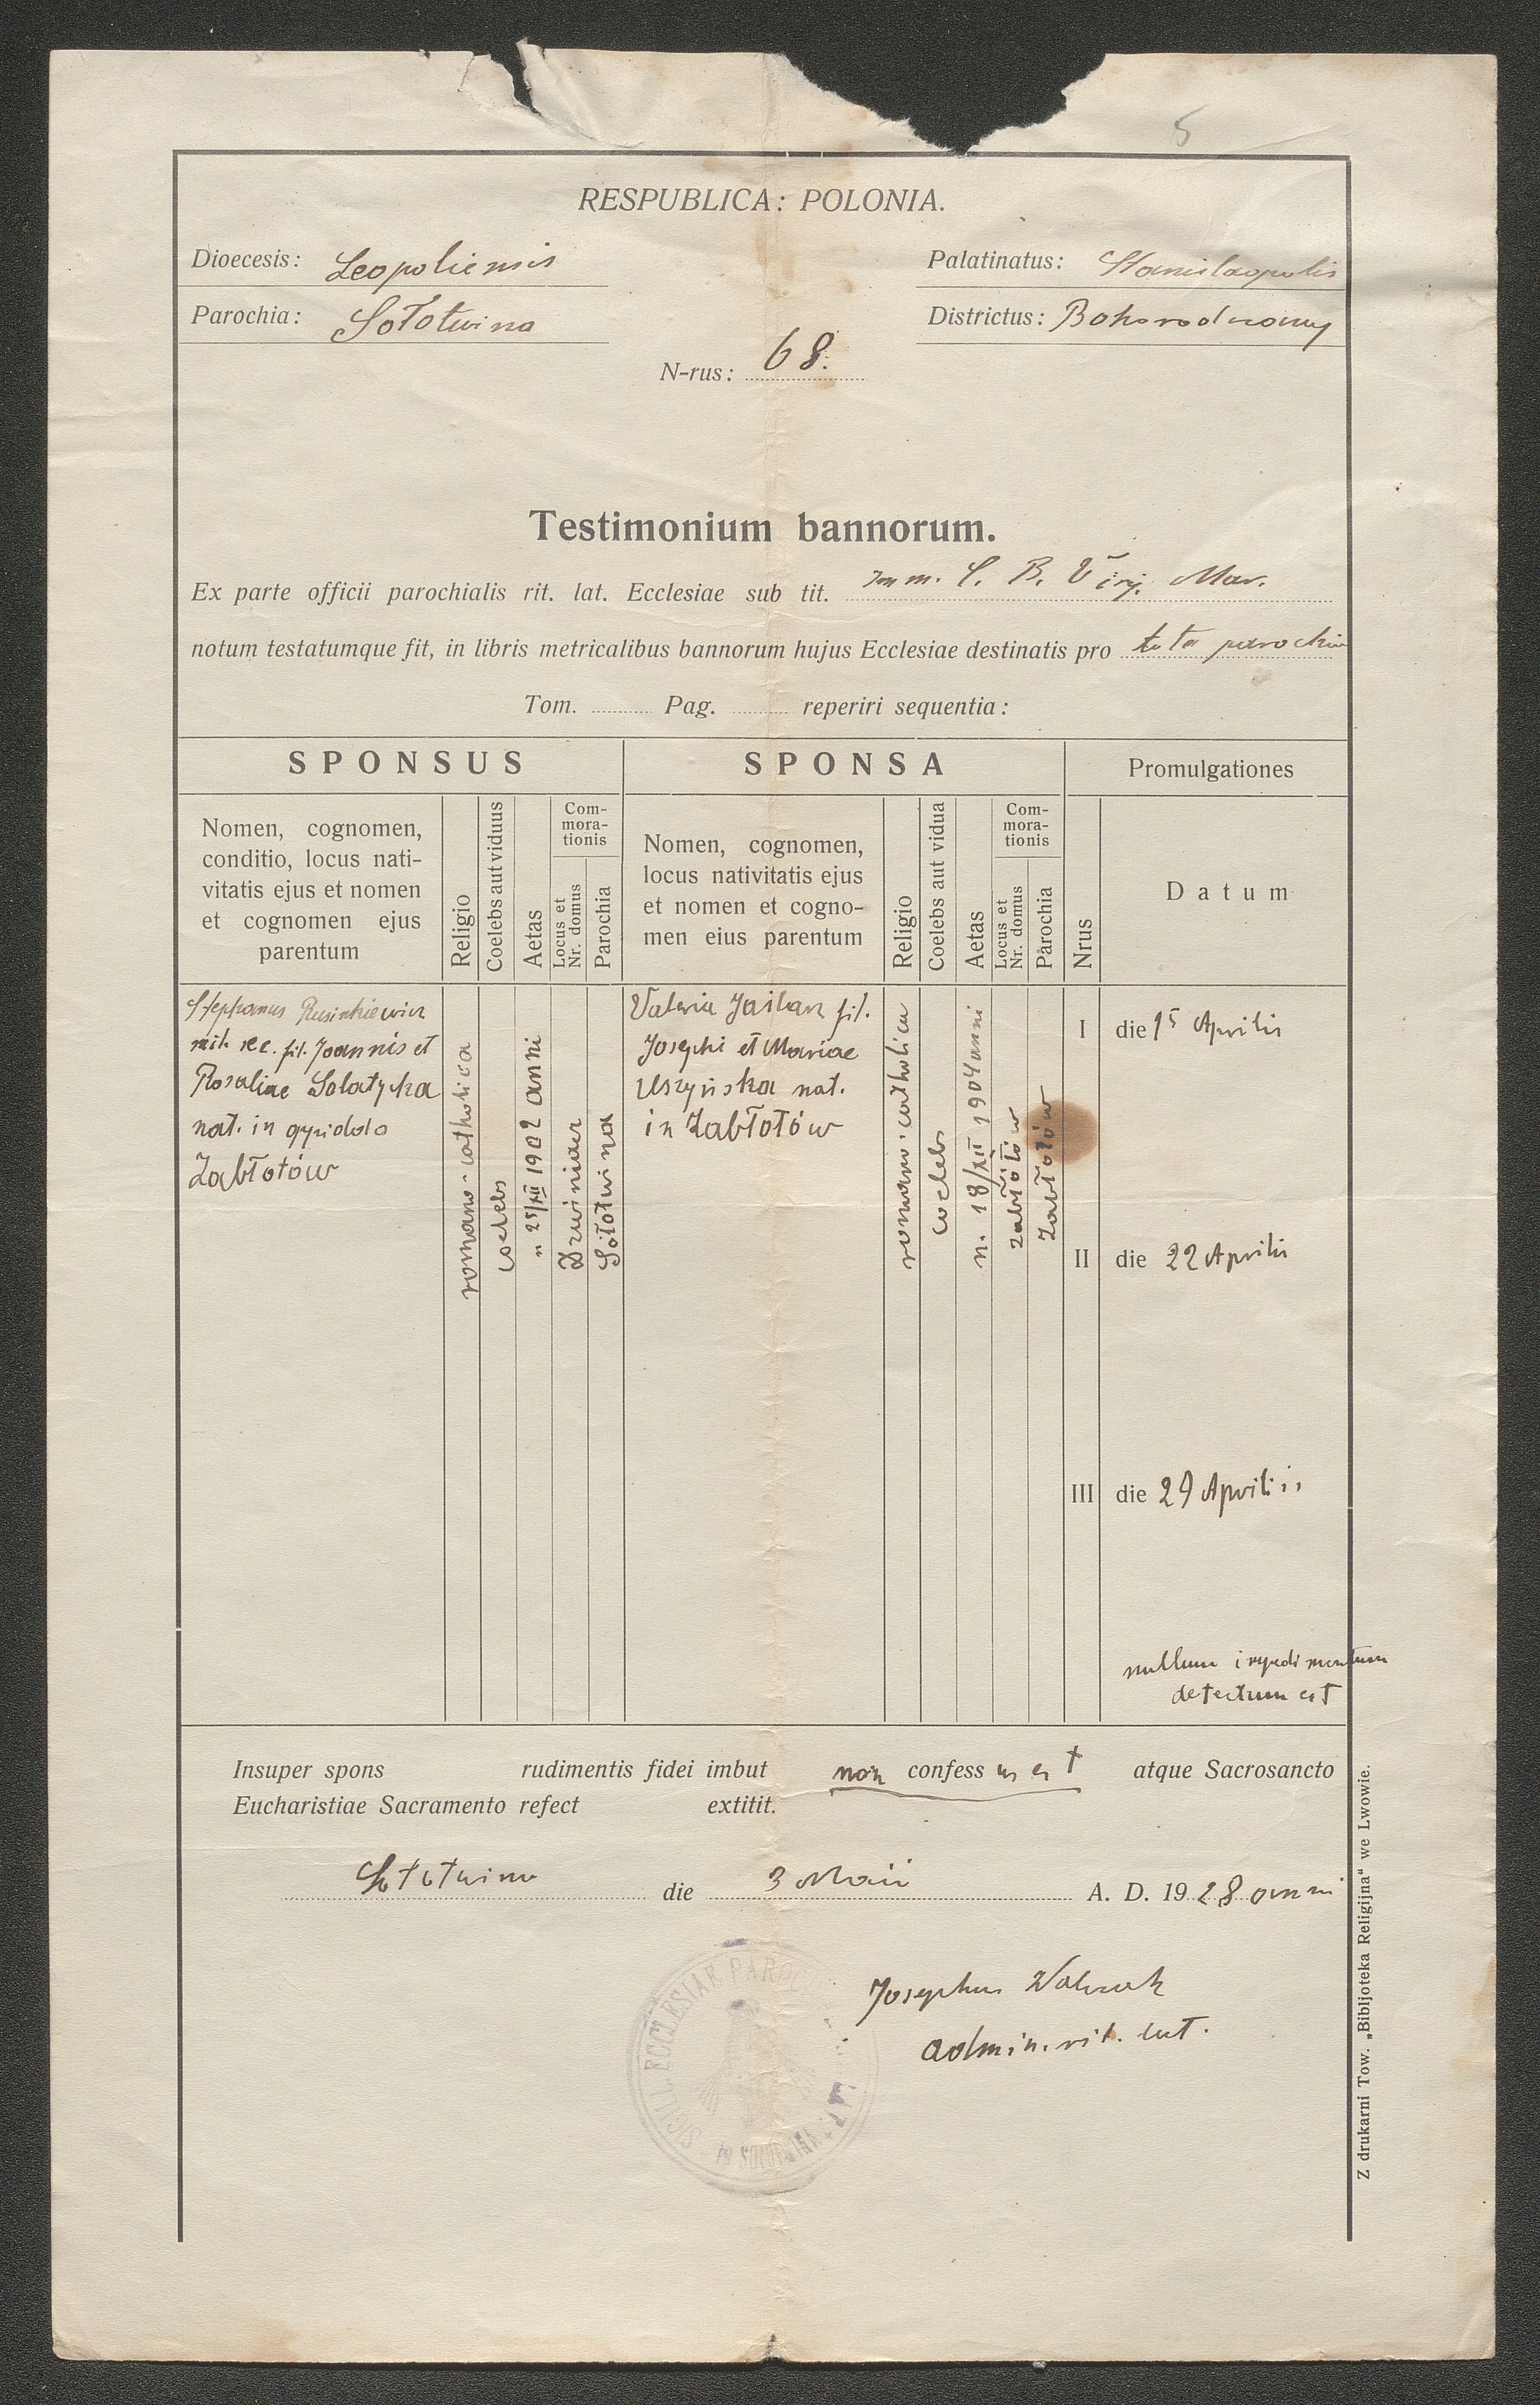 5
RESPUBLICA: POLONIA.
Dioecesis: Leopoliensis
Palatinatus: Stanislaopolis
Parochia: Sołotwina
Districtus: Bohorodczany
N-rus: 68.
Testimonium bannorum.
Ex parte officii parochialis rit. lat. Ecclesiae sub tit. Imm. C. B. Virg. Mar.
notum testatumque fit, in libris metricalibus bannorum hujus Ecclesiae destinatis pro tota parochia
Tom. Pag. reperiri sequentia:
SPONSUS
SPONSA
Promulgationes
Nomen, cognomen,
conditio, locus nati-
vitatis ejus et nomen
et cognomen ejus
parentum
Religio
Coelebs aut viduus
Aetas
Com-
mora-
tionis
Locus et
Nr. domus
Parochia
Nomen, cognomen,
locus nativitatis ejus
et nomen et cogno-
men eius parentum
Religio
Coelebs aut vidua
Aetas
Com-
mora-
tionis
Locus et
Nr. domus
Parochia
Nrus
Datum
Stephanus Rusinkiewicz
fil. Joannis et
Rosaliae Solatycka
nat. in oppidolo
Zabłotów
romano-catholica
coelebs
n 25/XII 1902 anni
Dzwiniacz
Sołotwina
Valeria Jailan fil.
Josephi et Mariae
Uszyńska nat.
in Zabłotów
romano-catholica
coelebs
n. 18/XII 1904 anni
Zabłotów
Zabłotów
I die 15 Aprilis
II die 22 Aprilis
III die 29 Aprilis
nullum impedimentum
detectum est
Insuper spons rudimentis fidei imbut non confessus est atque Sacrosancto
Eucharistiae Sacramento refect extitit.
Sołotwina die 3 Maii A. D. 1928 anni
Josephus Walczak
admin. rit. lat.
SIGILL. ECCLESIAE PAROCH. LAT. IN SOŁOTWINA
Z drukarni Tow. „Bibljoteka Religijna" we Lwowie.